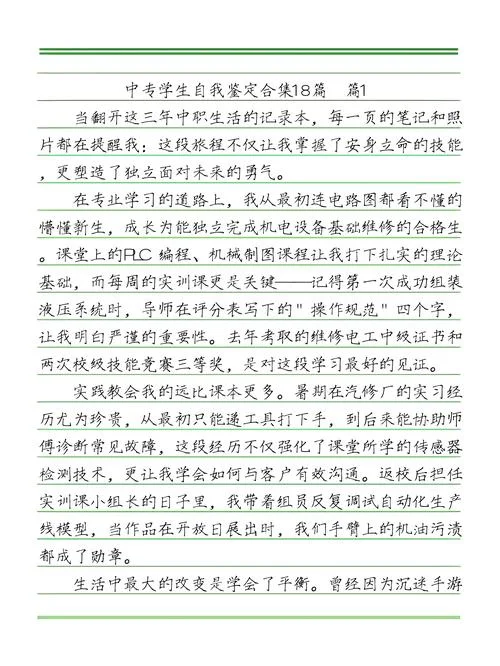 中专学生自我鉴定合集18篇 篇1
当翻开这三年中职生活的记录本，每一页的笔记和照
片都在提醒我：这段旅程不仅让我掌握了安身立命的技能
，更塑造了独立面对未来的勇气。
在专业学习的道路上，我从最初连电路图都看不懂的
懵懂新生，成长为能独立完成机电设备基础维修的合格生
。课堂上的PLC 编程、机械制图课程让我打下扎实的理论
基础，而每周的实训课更是关键——记得第一次成功组装
液压系统时，导师在评分表写下的"操作规范"四个字，
让我明白严谨的重要性。去年考取的维修电工中级证书和
两次校级技能竞赛三等奖，是对这段学习最好的见证。
实践教会我的远比课本更多。暑期在汽修厂的实习经
历尤为珍贵，从最初只能递工具打下手，到后来能协助师
傅诊断常见故障，这段经历不仅强化了课堂所学的传感器
检测技术，更让我学会如何与客户有效沟通。返校后担任
实训课小组长的日子里，我带着组员反复调试自动化生产
线模型，当作品在开放日展出时，我们手臂上的机油污渍
都成了勋章。
生活中最大的改变是学会了平衡。曾经因为沉迷手游